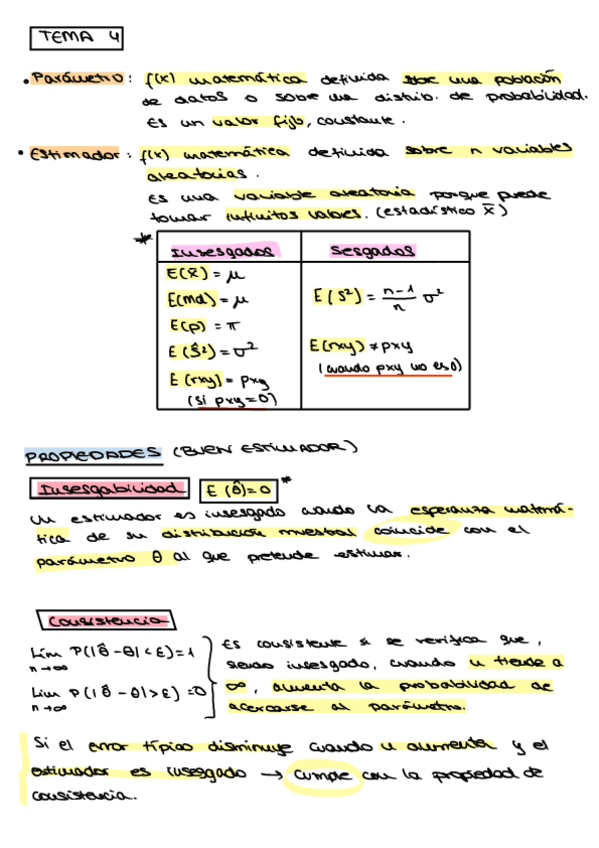 TEMA 4
• Parámetro: f(x) matemática definida sobre una población
de datos o sobre una distrib. de probabilidad.
Es un valor fijo, constante.
• Estimador: f(x) matemática definida sobre n variables
aleatorias.
Es una variable aleatoria porque puede
tomar infinitos valores. (estadístico x̄)
* Insesgados
E(x̄) = μ
E(md) = μ
E(p) = π
E(Ŝ²) = σ²
E(rxy) = ρxy
(si ρxy = 0)
Sesgados
E(S²) = n-1/n σ²
E(rxy) ≠ ρxy
(cuando ρxy no es 0)
PROPIEDADES (BUEN ESTIMADOR)
Insesgabilidad E(θ̂)=θ *
Un estimador es insesgado cuando la esperanza matemá-
tica de su distribución muestral coincide con el
parámetro θ al que pretende estimar.
Consistencia
Lim P(|θ̂ - θ| < ε) = 1
n→∞
Lim P(|θ̂ - θ| > ε) = 0
n→∞
Es consistente si se verifica que,
siendo insesgado, cuando n tiende a
∞, aumenta la probabilidad de
acercarse al parámetro.
Si el error típico disminuye cuando n aumenta y el
estimador es insesgado → cumple con la propiedad de
consistencia.